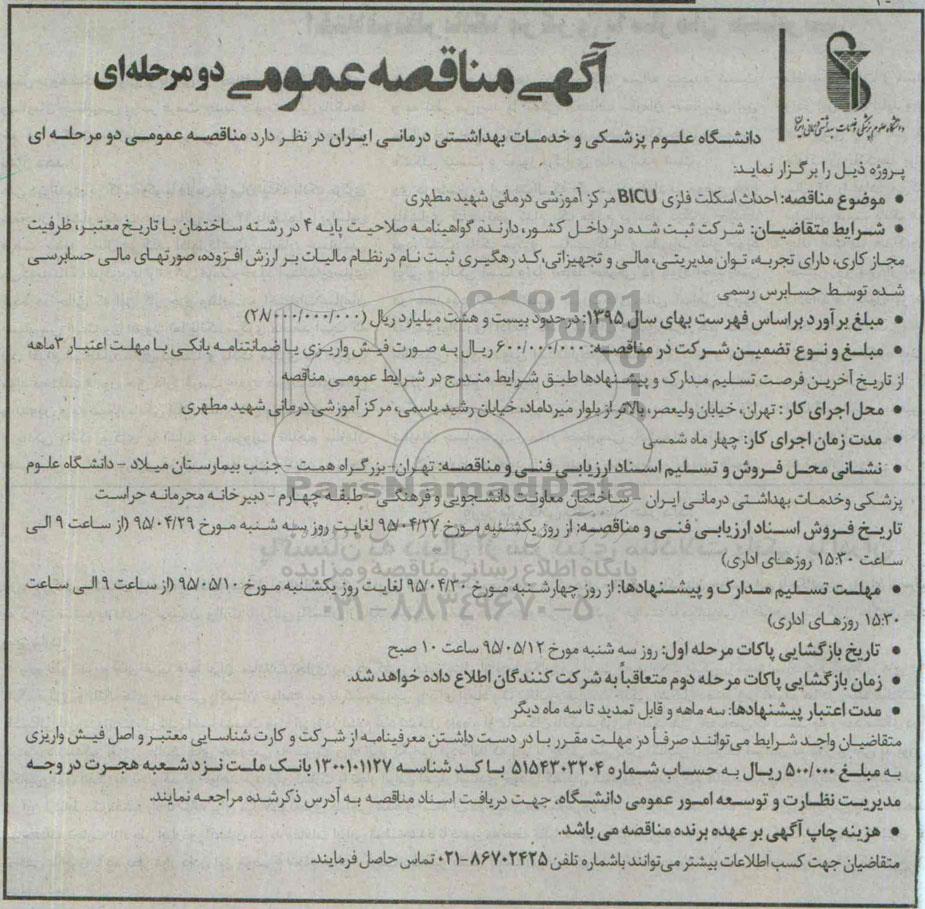 دانشگاه علوم پزشکی و خدمات بهداشتی درمانی ایران
آگهی مناقصه عمومی دو مرحله‌ای
دانشگاه علوم پزشکی و خدمات بهداشتی درمانی ایران در نظر دارد مناقصه عمومی دو مرحله ای
پروژه ذیل را برگزار نماید:
● موضوع مناقصه: احداث اسکلت فلزی BICU مرکز آموزشی درمانی شهید مطهری
● شرایط متقاضیان: شرکت ثبت شده در داخل کشور، دارنده گواهینامه صلاحیت پایه ۴ در رشته ساختمان با تاریخ معتبر، ظرفیت
مجاز کاری، دارای تجربه، توان مدیریتی، مالی و تجهیزاتی، کد رهگیری ثبت نام در نظام مالیات بر ارزش افزوده، صورتهای مالی حسابرسی
شده توسط حسابرس رسمی
● مبلغ برآورد براساس فهرست بهای سال ۱۳۹۵: در حدود بیست و هشت میلیارد ریال (۲۸/۰۰۰/۰۰۰/۰۰۰)
● مبلغ و نوع تضمین شرکت در مناقصه: ۶۰۰/۰۰۰/۰۰۰ ریال به صورت فیش واریزی یا ضمانتنامه بانکی با مهلت اعتبار ۳ماهه
از تاریخ آخرین فرصت تسلیم مدارک و پیشنهادها طبق شرایط مندرج در شرایط عمومی مناقصه
● محل اجرای کار : تهران، خیابان ولیعصر، بالاتر از بلوار میرداماد، خیابان رشید یاسمی، مرکز آموزشی درمانی شهید مطهری
● مدت زمان اجرای کار: چهار ماه شمسی
● نشانی محل فروش و تسلیم اسناد ارزیابی فنی و مناقصه: تهران- بزرگراه همت - جنب بیمارستان میلاد - دانشگاه علوم
پزشکی وخدمات بهداشتی درمانی ایران - ساختمان معاونت دانشجویی و فرهنگی - طبقه چهارم - دبیرخانه محرمانه حراست
تاریخ فروش اسناد ارزیابی فنی و مناقصه: از روز یکشنبه مورخ ۹۵/۰۴/۲۷ لغایت روز سه شنبه مورخ ۹۵/۰۴/۲۹ (از ساعت ۹ الی
ساعت ۱۵:۳۰ روزهای اداری)
● مهلت تسلیم مدارک و پیشنهادها: از روز چهارشنبه مورخ ۹۵/۰۴/۳۰ لغایت روز یکشنبه مورخ ۹۵/۰۵/۱۰ (از ساعت ۹ الی ساعت
۱۵:۳۰ روزهای اداری)
● تاریخ بازگشایی پاکات مرحله اول: روز سه شنبه مورخ ۹۵/۰۵/۱۲ ساعت ۱۰ صبح
● زمان بازگشایی پاکات مرحله دوم متعاقباً به شرکت کنندگان اطلاع داده خواهد شد.
● مدت اعتبار پیشنهادها: سه ماهه و قابل تمدید تا سه ماه دیگر
متقاضیان واجد شرایط می‌توانند صرفاً در مهلت مقرر با در دست داشتن معرفینامه از شرکت و کارت شناسایی معتبر و اصل فیش واریزی
به مبلغ ۵۰۰/۰۰۰ ریال به حساب شماره ۵۱۵۴۳۰۳۲۰۴ با کد شناسه ۱۳۰۰۱۰۱۱۲۷ بانک ملت نزد شعبه هجرت در وجه
مدیریت نظارت و توسعه امور عمومی دانشگاه، جهت دریافت اسناد مناقصه به آدرس ذکرشده مراجعه نمایند.
● هزینه چاپ آگهی بر عهده برنده مناقصه می باشد.
متقاضیان جهت کسب اطلاعات بیشتر می‌توانند باشماره تلفن ۸۶۷۰۲۴۲۵-۰۲۱ تماس حاصل فرمایند.
ParsNamadData
پایگاه اطلاع رسانی مناقصه و مزایده
۰۲۱-۸۸۳۴۹۶۷۰-۵